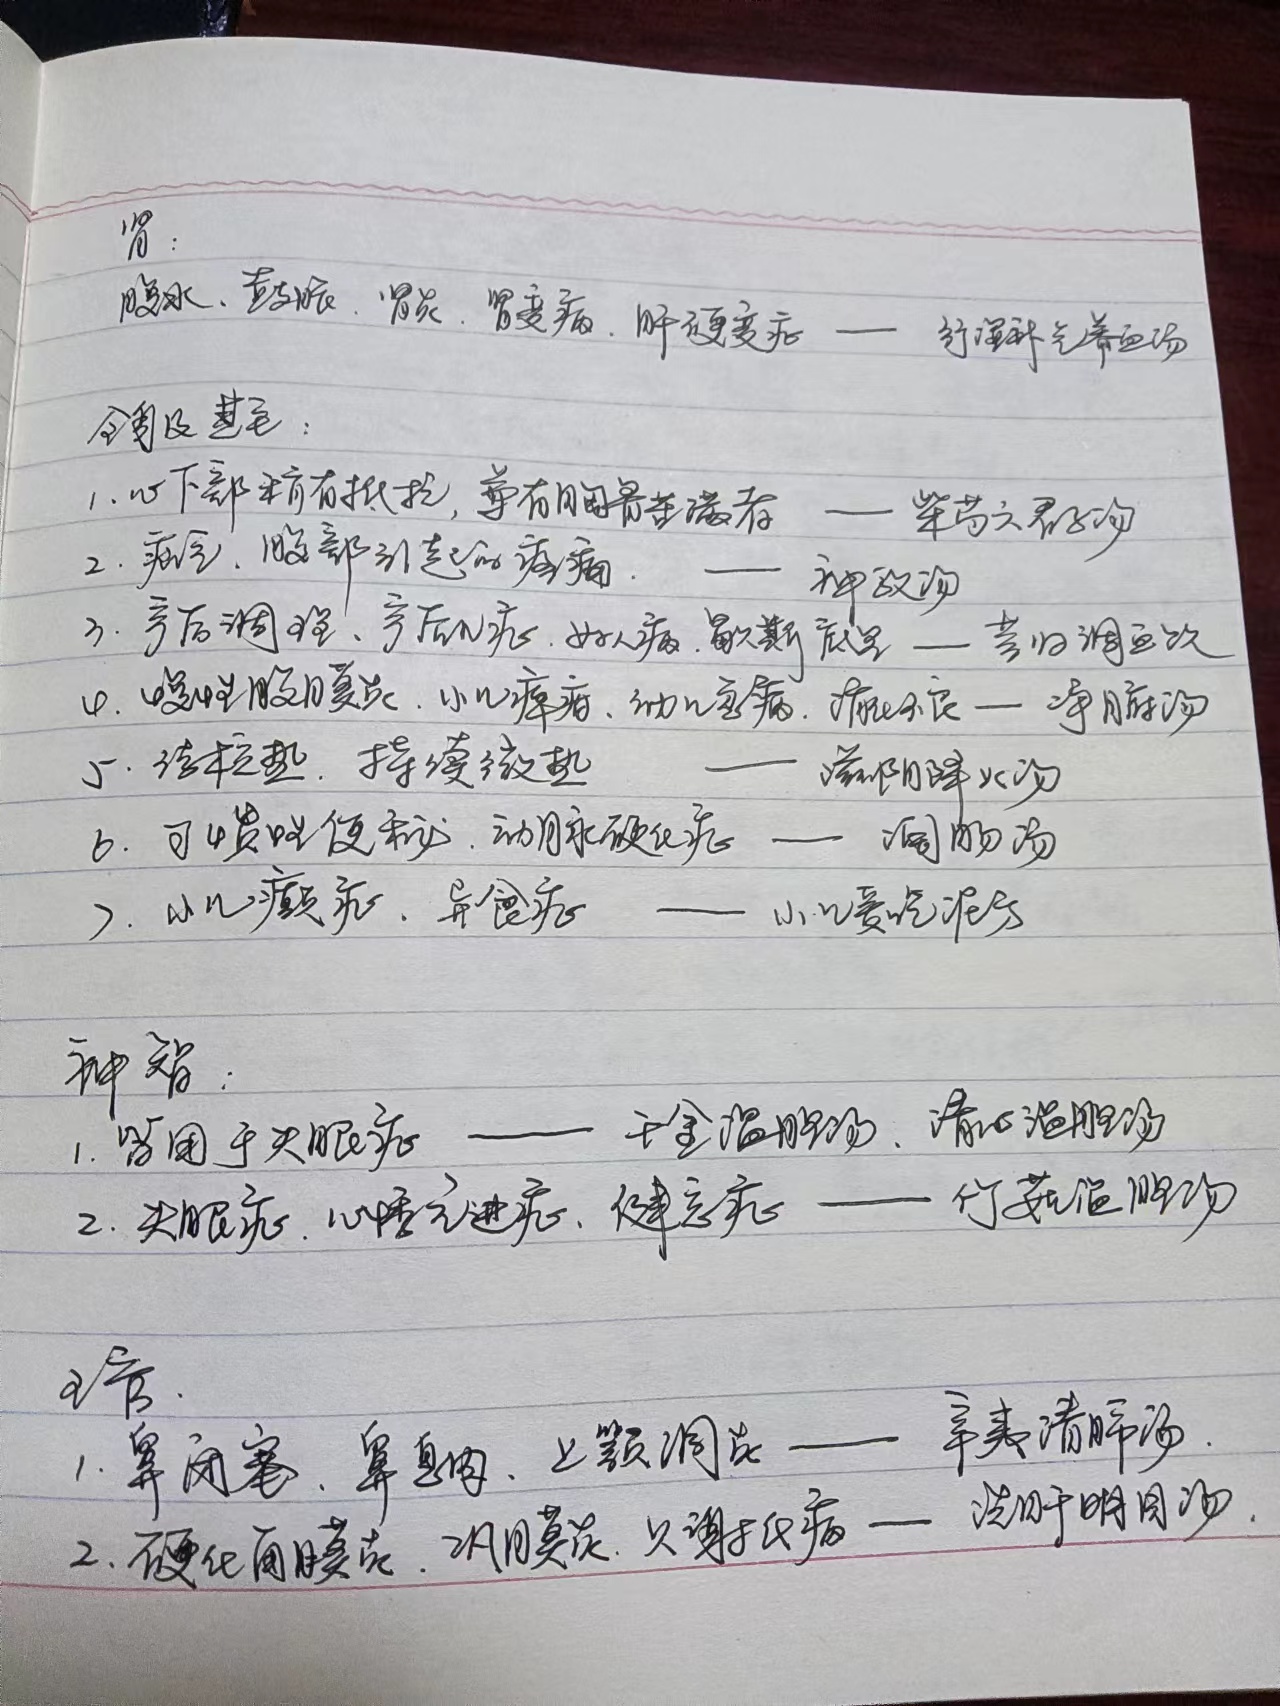 肾：
腹水、鼓胀、肾炎、肾变病、肝硬变症 —— 行湿补气养血汤
全身及其它：
1. 心下部稍有抵抗，兼有胸胁苦满者 —— 柴芍六君子汤
2. 病气、腹部引起的疼痛. —— 神效汤
3. 产后调理、产后诸症、妇人病、歇斯底里 —— 芎归调血饮
4. 慢性腹膜炎、小儿痹疳、幼儿急病、消化不良 — 净腑汤
5. 结核热、持续微热 —— 滋阴降火汤
6. 习惯性便秘、动脉硬化症 —— 润肠汤
7. 小儿癫症、异食症 —— 小儿爱吃泥方
神智：
1. 皆用于失眠症 —— 千金温胆汤、清心温胆汤
2. 失眠症、心悸亢进症、健忘症 —— 竹茹温胆汤
五官.
1. 鼻闭塞、鼻息肉、上颚洞炎 —— 辛夷清肺汤.
2. 硬化角膜炎、巩膜炎、只 病 — 洗肝明目汤.